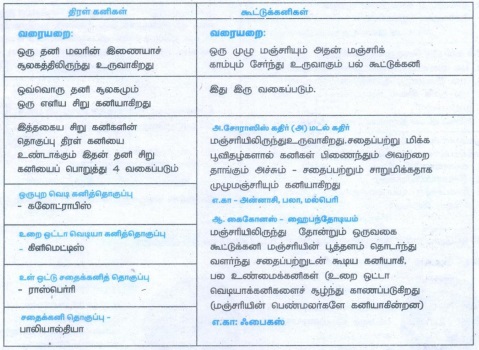 திரள் கனிகள்
கூட்டுக்கனிகள்
வரையறை:
ஒரு தனி மலரின் இணையாச்
சூலகத்திலிருந்து உருவாகிறது
வரையறை:
ஒரு முழு மஞ்சரியும் அதன் மஞ்சரிக்
காம்பும் சேர்ந்து உருவாகும் பல் கூட்டுக்கனி
ஒவ்வொரு தனி சூலகமும்
ஒரு எளிய சிறு கனியாகிறது
இது இரு வகைப்படும்.
இத்தகைய சிறு கனிகளின்
தொகுப்பு திரள் கனியை
உண்டாக்கும் இதன் தனி சிறு
கனியைப் பொறுத்து 4 வகைப்படும்
ஒருபுற வெடி கனித்தொகுப்பு
- கலோட்ராபிஸ்
உறை ஒட்டா வெடியா கனித்தொகுப்பு
- கிளிமெட்டிஸ்
உள் ஓட்டு சதைக்கனித் தொகுப்பு
- ராஸ்பெர்ரி
சதைக்கனி தொகுப்பு -
பாலியால்தியா
அ.சோராஸிஸ் கதிர் (அ) மடல் கதிர்
மஞ்சரியிலிருந்துஉருவாகிறது.சதைப்பற்று மிக்க
பூவிதழ்களால் கனிகள் பிணைந்தும் அவற்றை
தாங்கும் அச்சும் - சதைப்பற்றும் சாறுமிக்கதாக
முழுமஞ்சரியும் கனியாகிறது
எ.கா - அன்னாசி, பலா, மல்பெரி
ஆ. சைகோனஸ் - ஹைபந்தோடியம்
மஞ்சரியிலிருந்து தோன்றும் ஒருவகை
கூட்டுக்கனி மஞ்சரியின் பூத்தளம் தொடர்ந்து
வளர்ந்து சதைப்பற்றுடன் கூடிய கனியாகி,
பல உண்மைக்கனிகள் (உறை ஒட்டா
வெடியாக்கனிகளைச் சூழ்ந்து காணப்படுகிறது
(மஞ்சரியின் பெண்மலர்களே கனியாகின்றன)
எ.கா: ஃபைகஸ்